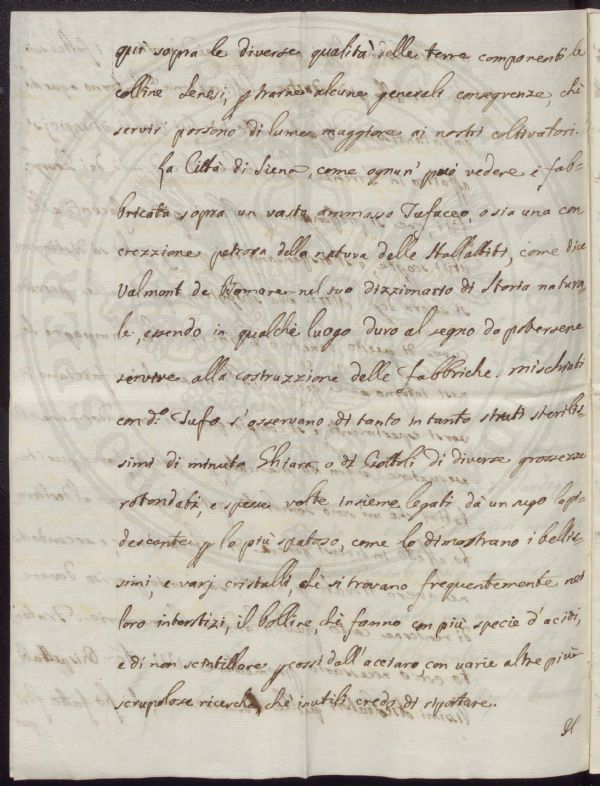 quì sopra le diverse qualità delle terre componenti le
colline Senesi, p trarne alcune generali consegrenze, chè
servir possono di lume maggiore ai nostri coltivatori.
La Città di Siena, come ognun' può vedere è fab-
bricata sopra un vasto ammasso Tufaceo, o sia una con
crezzione petrosa della natura delle Stallattiti, come dice
Valmont de Bomare nel suo dizzionario di Storia natura
le, essendo in qualchè luogo duro al segno da pottersene
servire alla costruzzione delle fabbriche. mischiati
con d.o Tufo s'osservano di tanto in tanto strati sterilis-
simi di minuta Ghiara, o di Ciottoli di diverse grossezze
rotondati, e spesse volte insieme legati dà un sugo lapi-
descente p lo più spatoso, come lo dimostrano i bellis-
simi, e varj cristalli, chè si trovano frequentemente nei
loro interstizi, il bollire, chè fanno con più specie d'acidi,
e di non scintillare pcossi dall'acciaro con varie altre più
scrupolose ricerche, chè inutili credo di riportare.